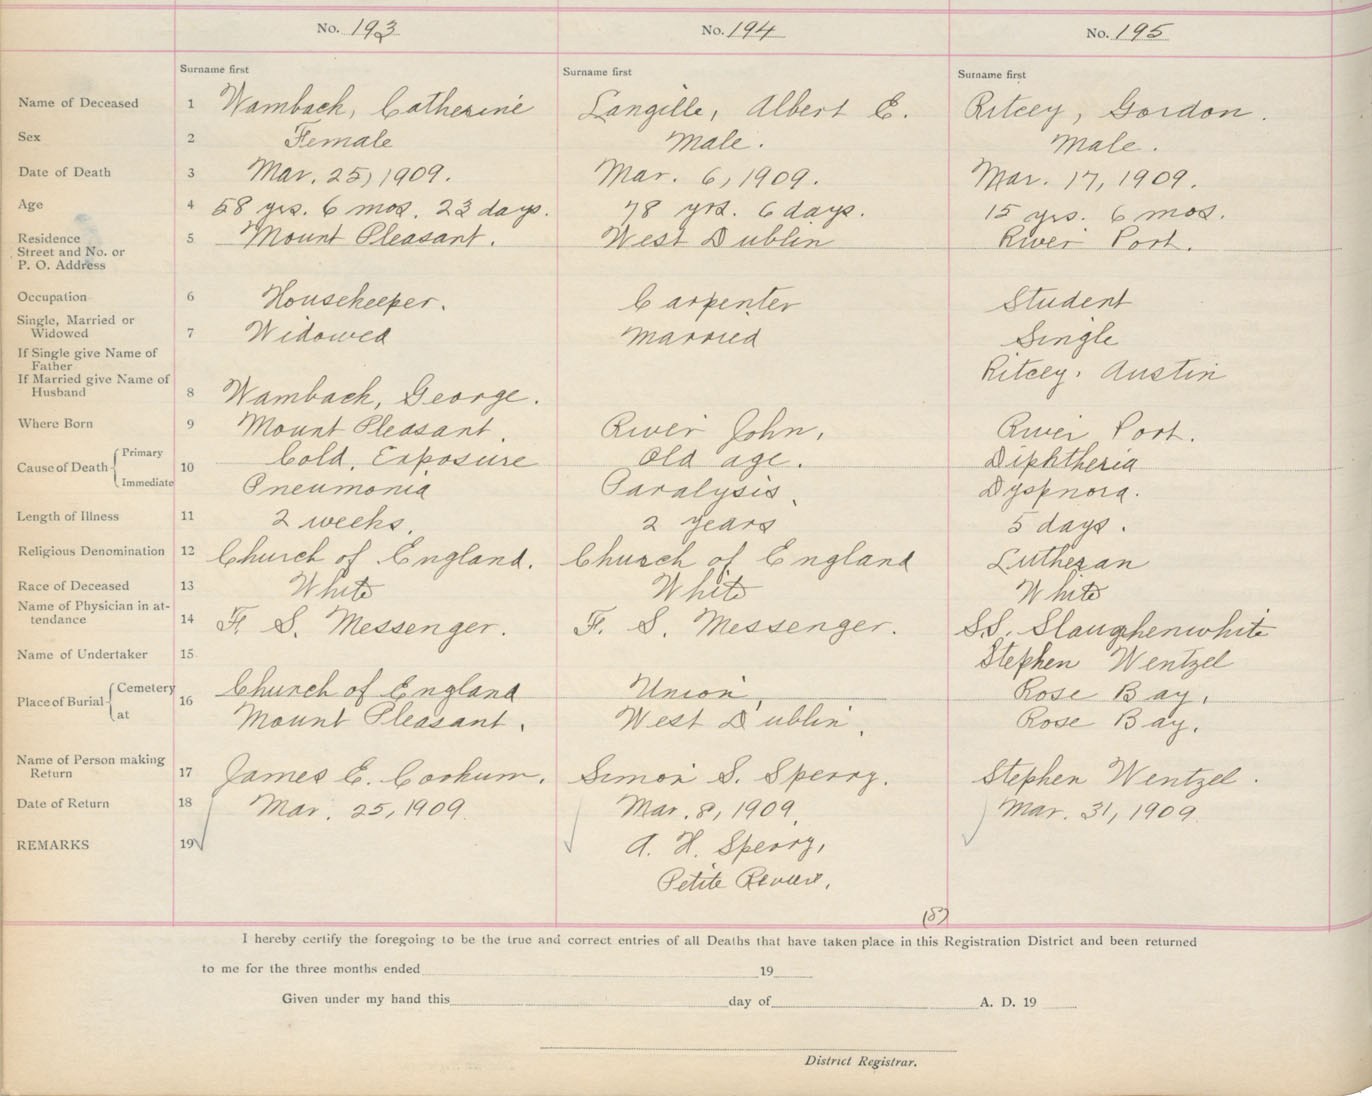 No. 193 No. 194 No. 195
Surname first Surname first Surname first
Name of Deceased 1 Wambach, Catherine Langille, Albert E. Ritcey, Gordon.
Sex 2 Female Male. Male.
Date of Death 3 Mar. 25, 1909. Mar. 6, 1909. Mar. 17, 1909.
Age 4 58 yrs. 6 mos. 23 days. 78 yrs. 6 days. 15 yrs. 6 mos.
Residence 5 Mount Pleasant. West Dublin River Port.
Street and No. or
P. O. Address
Occupation 6 Housekeeper. Carpenter Student
Single, Married or
Widowed 7 Widowed Married Single
If Single give Name of
Father Ritcey, Austin
If Married give Name of
Husband 8 Wambach, George.
Where Born 9 Mount Pleasant. River John, River Port.
Cause of Death Primary 10 Cold, Exposure Old age. Diphtheria
Immediate Pneumonia Paralysis. Dyspnora.
Length of Illness 11 2 weeks. 2 years 5 days.
Religious Denomination 12 Church of England. Church of England Lutheran
Race of Deceased 13 White White White
Name of Physician in at-
tendance 14 F. S. Messenger. F. S. Messenger. S.S. Slaughenwhite
Name of Undertaker 15 Stephen Wentzel
Place of Burial Cemetery 16 Church of England Union Rose Bay,
at Mount Pleasant. West Dublin. Rose Bay.
Name of Person making
Return 17 James E. Corkum. Simon S. Sperry. Stephen Wentzel.
Date of Return 18 Mar. 25, 1909 Mar. 8, 1909. Mar. 31, 1909
REMARKS 19 A. H. Sperry,
Petite Reviere.
(8)
I hereby certify the foregoing to be the true and correct entries of all Deaths that have taken place in this Registration District and been returned
to me for the three months ended 19
Given under my hand this day of A. D. 19
District Registrar.